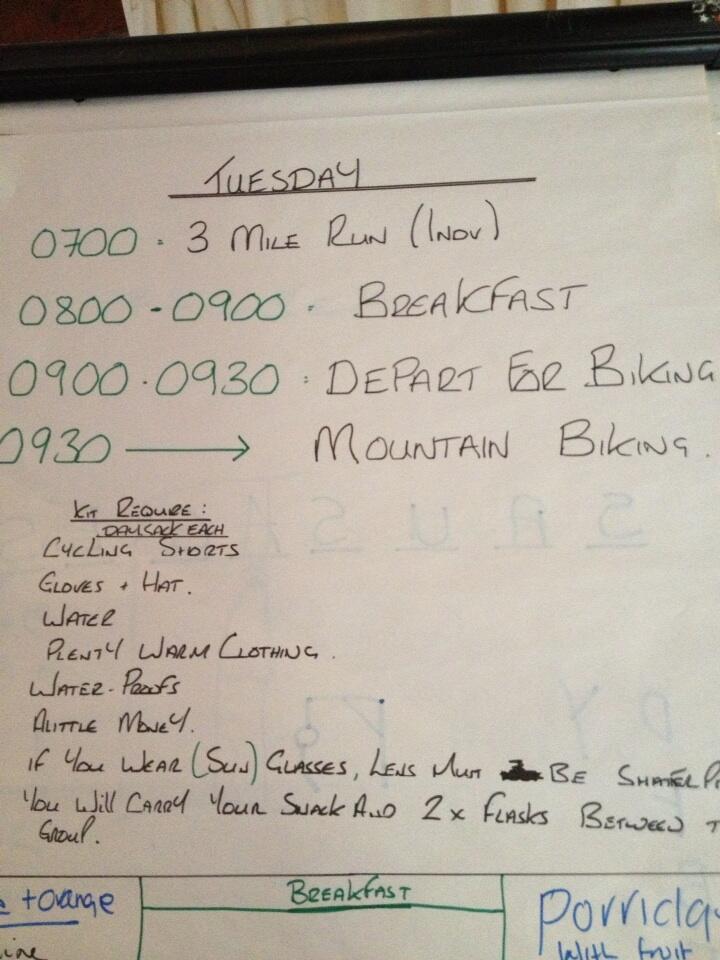 TUESDAY
0700 · 3 MILE RUN (INDV)
0800 - 0900 · BREAKFAST
0900 · 0930 : DEPART FOR BIKING
0930 → MOUNTAIN BIKING.
KIT REQUIRE :
DAYSACK EACH
CYCLING SHORTS
GLOVES + HAT.
WATER
PLENTY WARM CLOTHING.
WATER-PROOFS
ALITTLE MONEY.
IF YOU WEAR (SUN) GLASSES, LENS MUST BE SHATERP
YOU WILL CARRY YOUR SNACK AND 2 x FLASKS BETWEEN T
GROUP.
+ orange
BREAKFAST
Porridg
With fruit